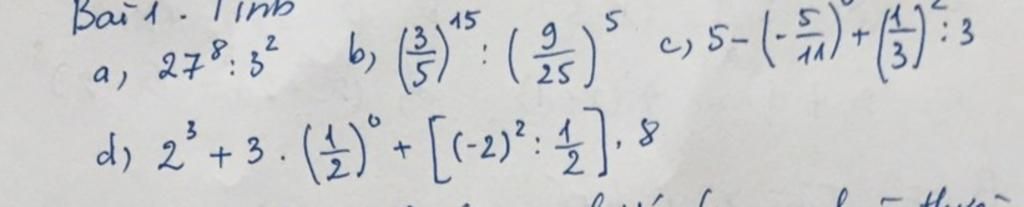 Bài 1. Tính
a, 27⁸ : 3² b, (3/5)¹⁵ : (9/25)⁵ c, 5 - (-5/11)⁰ + (1/3)² : 3
d, 2³ + 3 . (1/2)⁰ + [(-2)² : 1/2] . 8